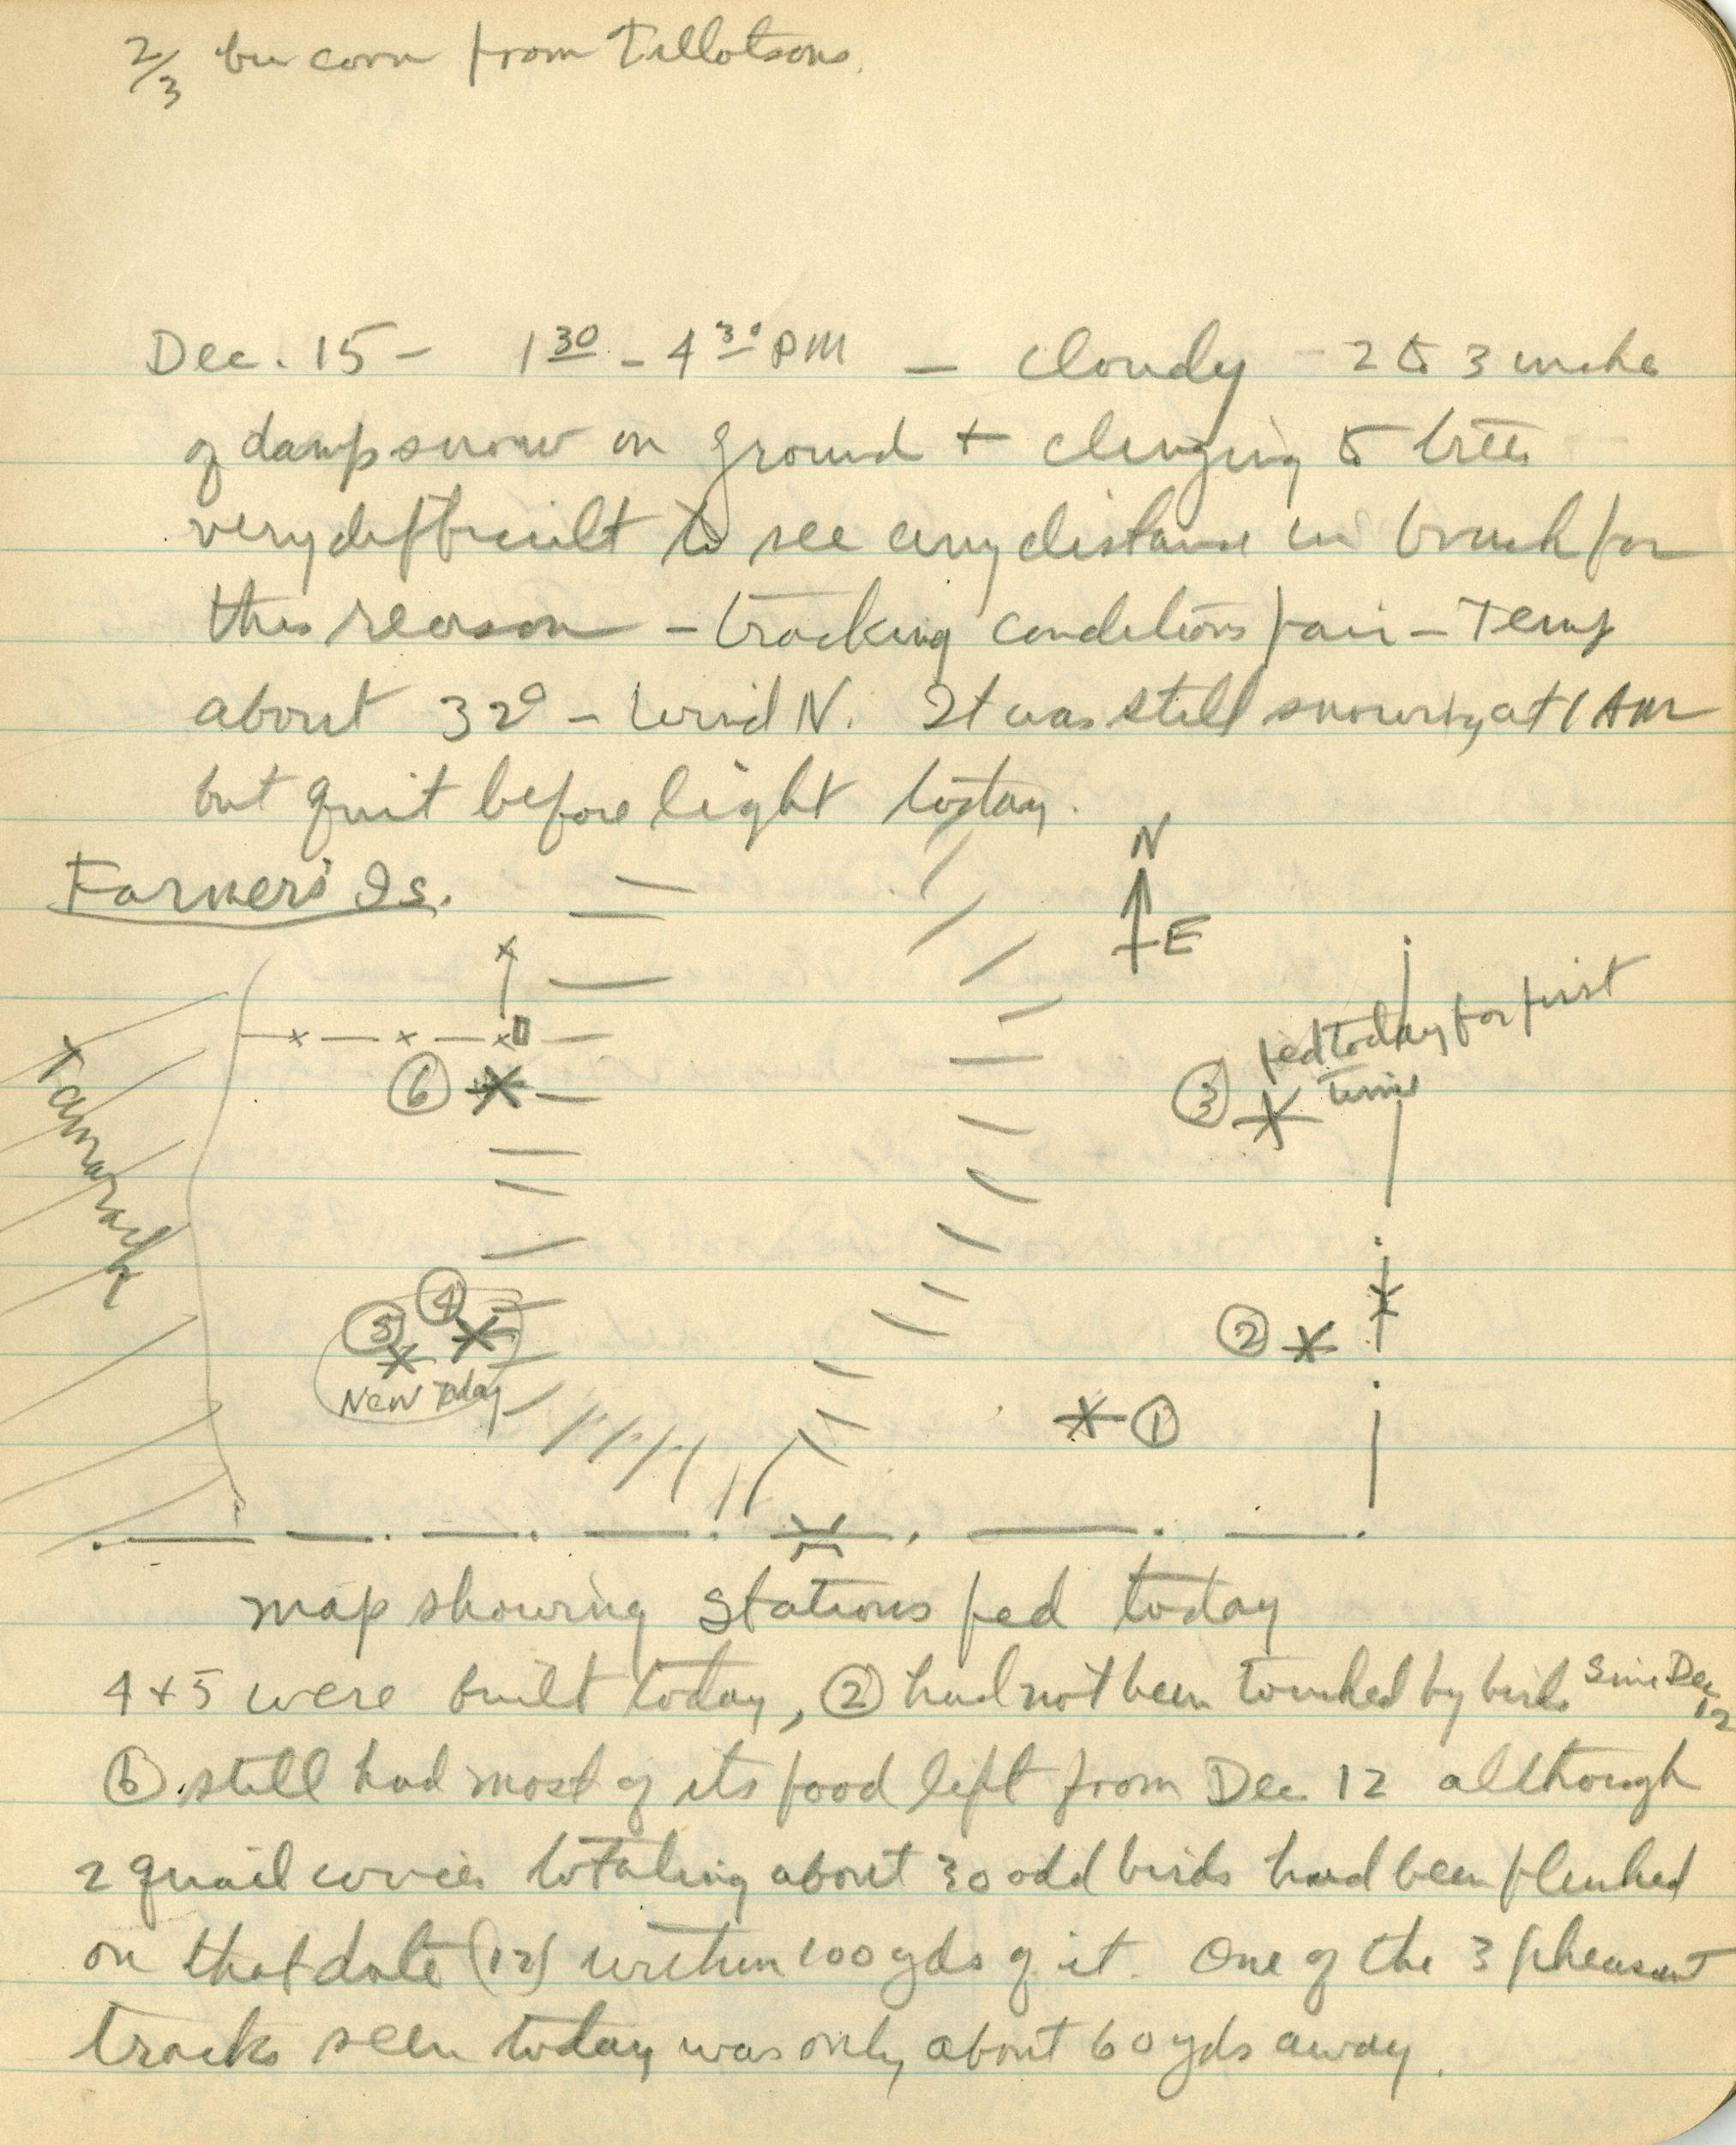 2/3 bu corn from Tillotsons.
Dec. 15 - 1 30 - 4 30 PM - Cloudy - 2 to 3 inches
of damp snow on ground + clinging to trees
very difficult to see any distance in brush for
this reason - tracking conditions fair - Temp
about 32° - Wind N. It was still snowing at 1 AM
but quit before light today.
Farmers Is.
N
E
fed today for first
time
③
⑥
Tamarack
④
⑤
New Today
②
①
map showing stations fed today
4 + 5 were built today, ② had not been touched by birds since Dec
12
⑥ still had most of its food left from Dec 12 although
2 quail covies totaling about 30 odd birds had been flushed
on that date (12) within 100 yds of it. One of the 3 pheasant
tracks seen today was only about 60 yds away.